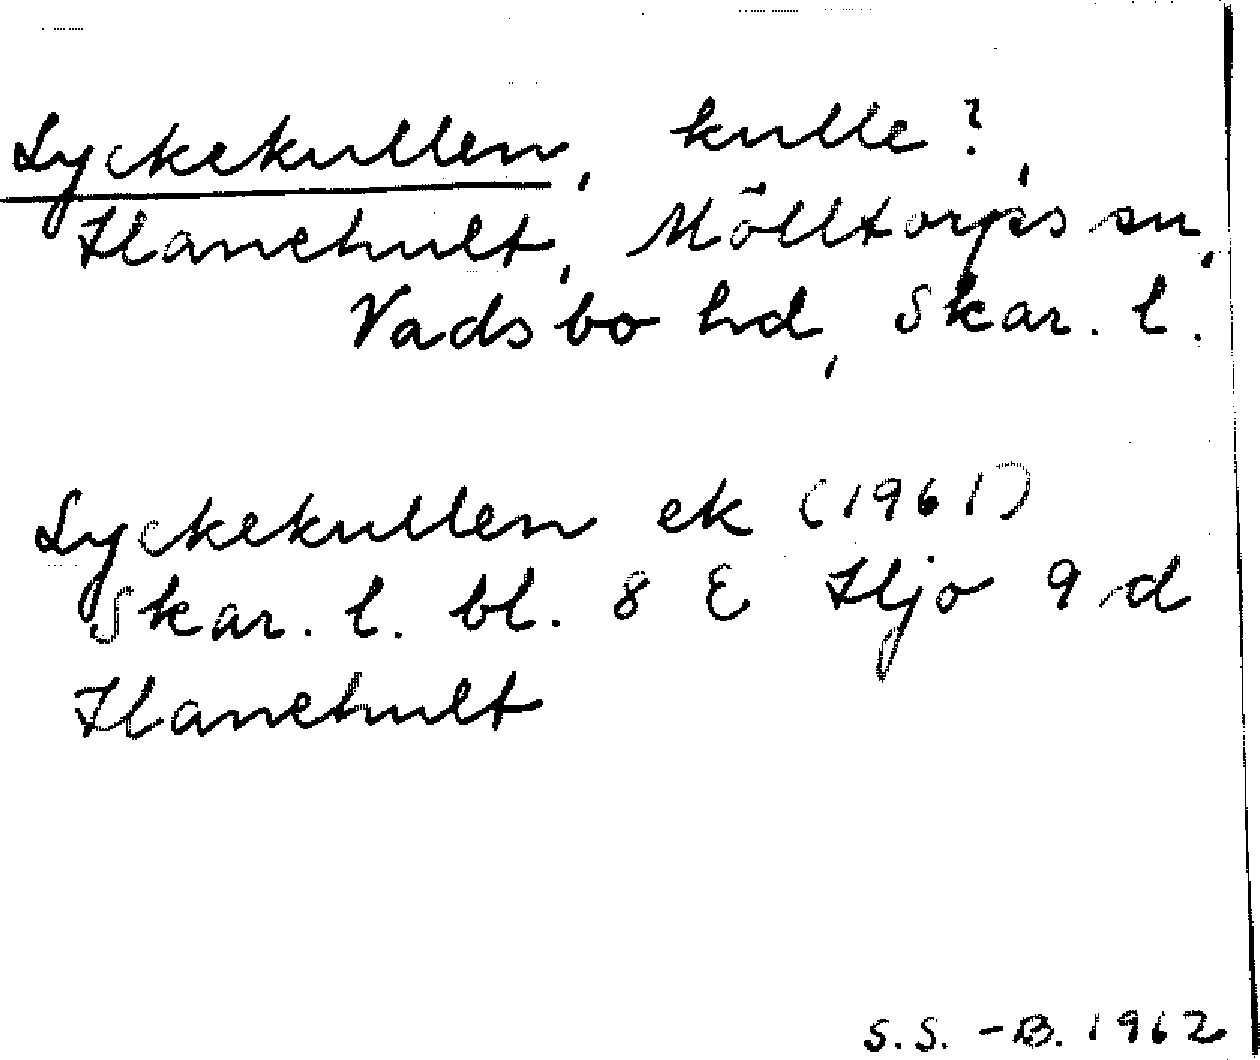 Lyckekullen, kulle?,
Hanehult, Mölltorps sn,
Vadsbo hd, Skar. l.
Lyckekullen ek (1961)
Skar. l. bl. 8 E Hjo 9 d
Hanehult
S.S.-B. 1962